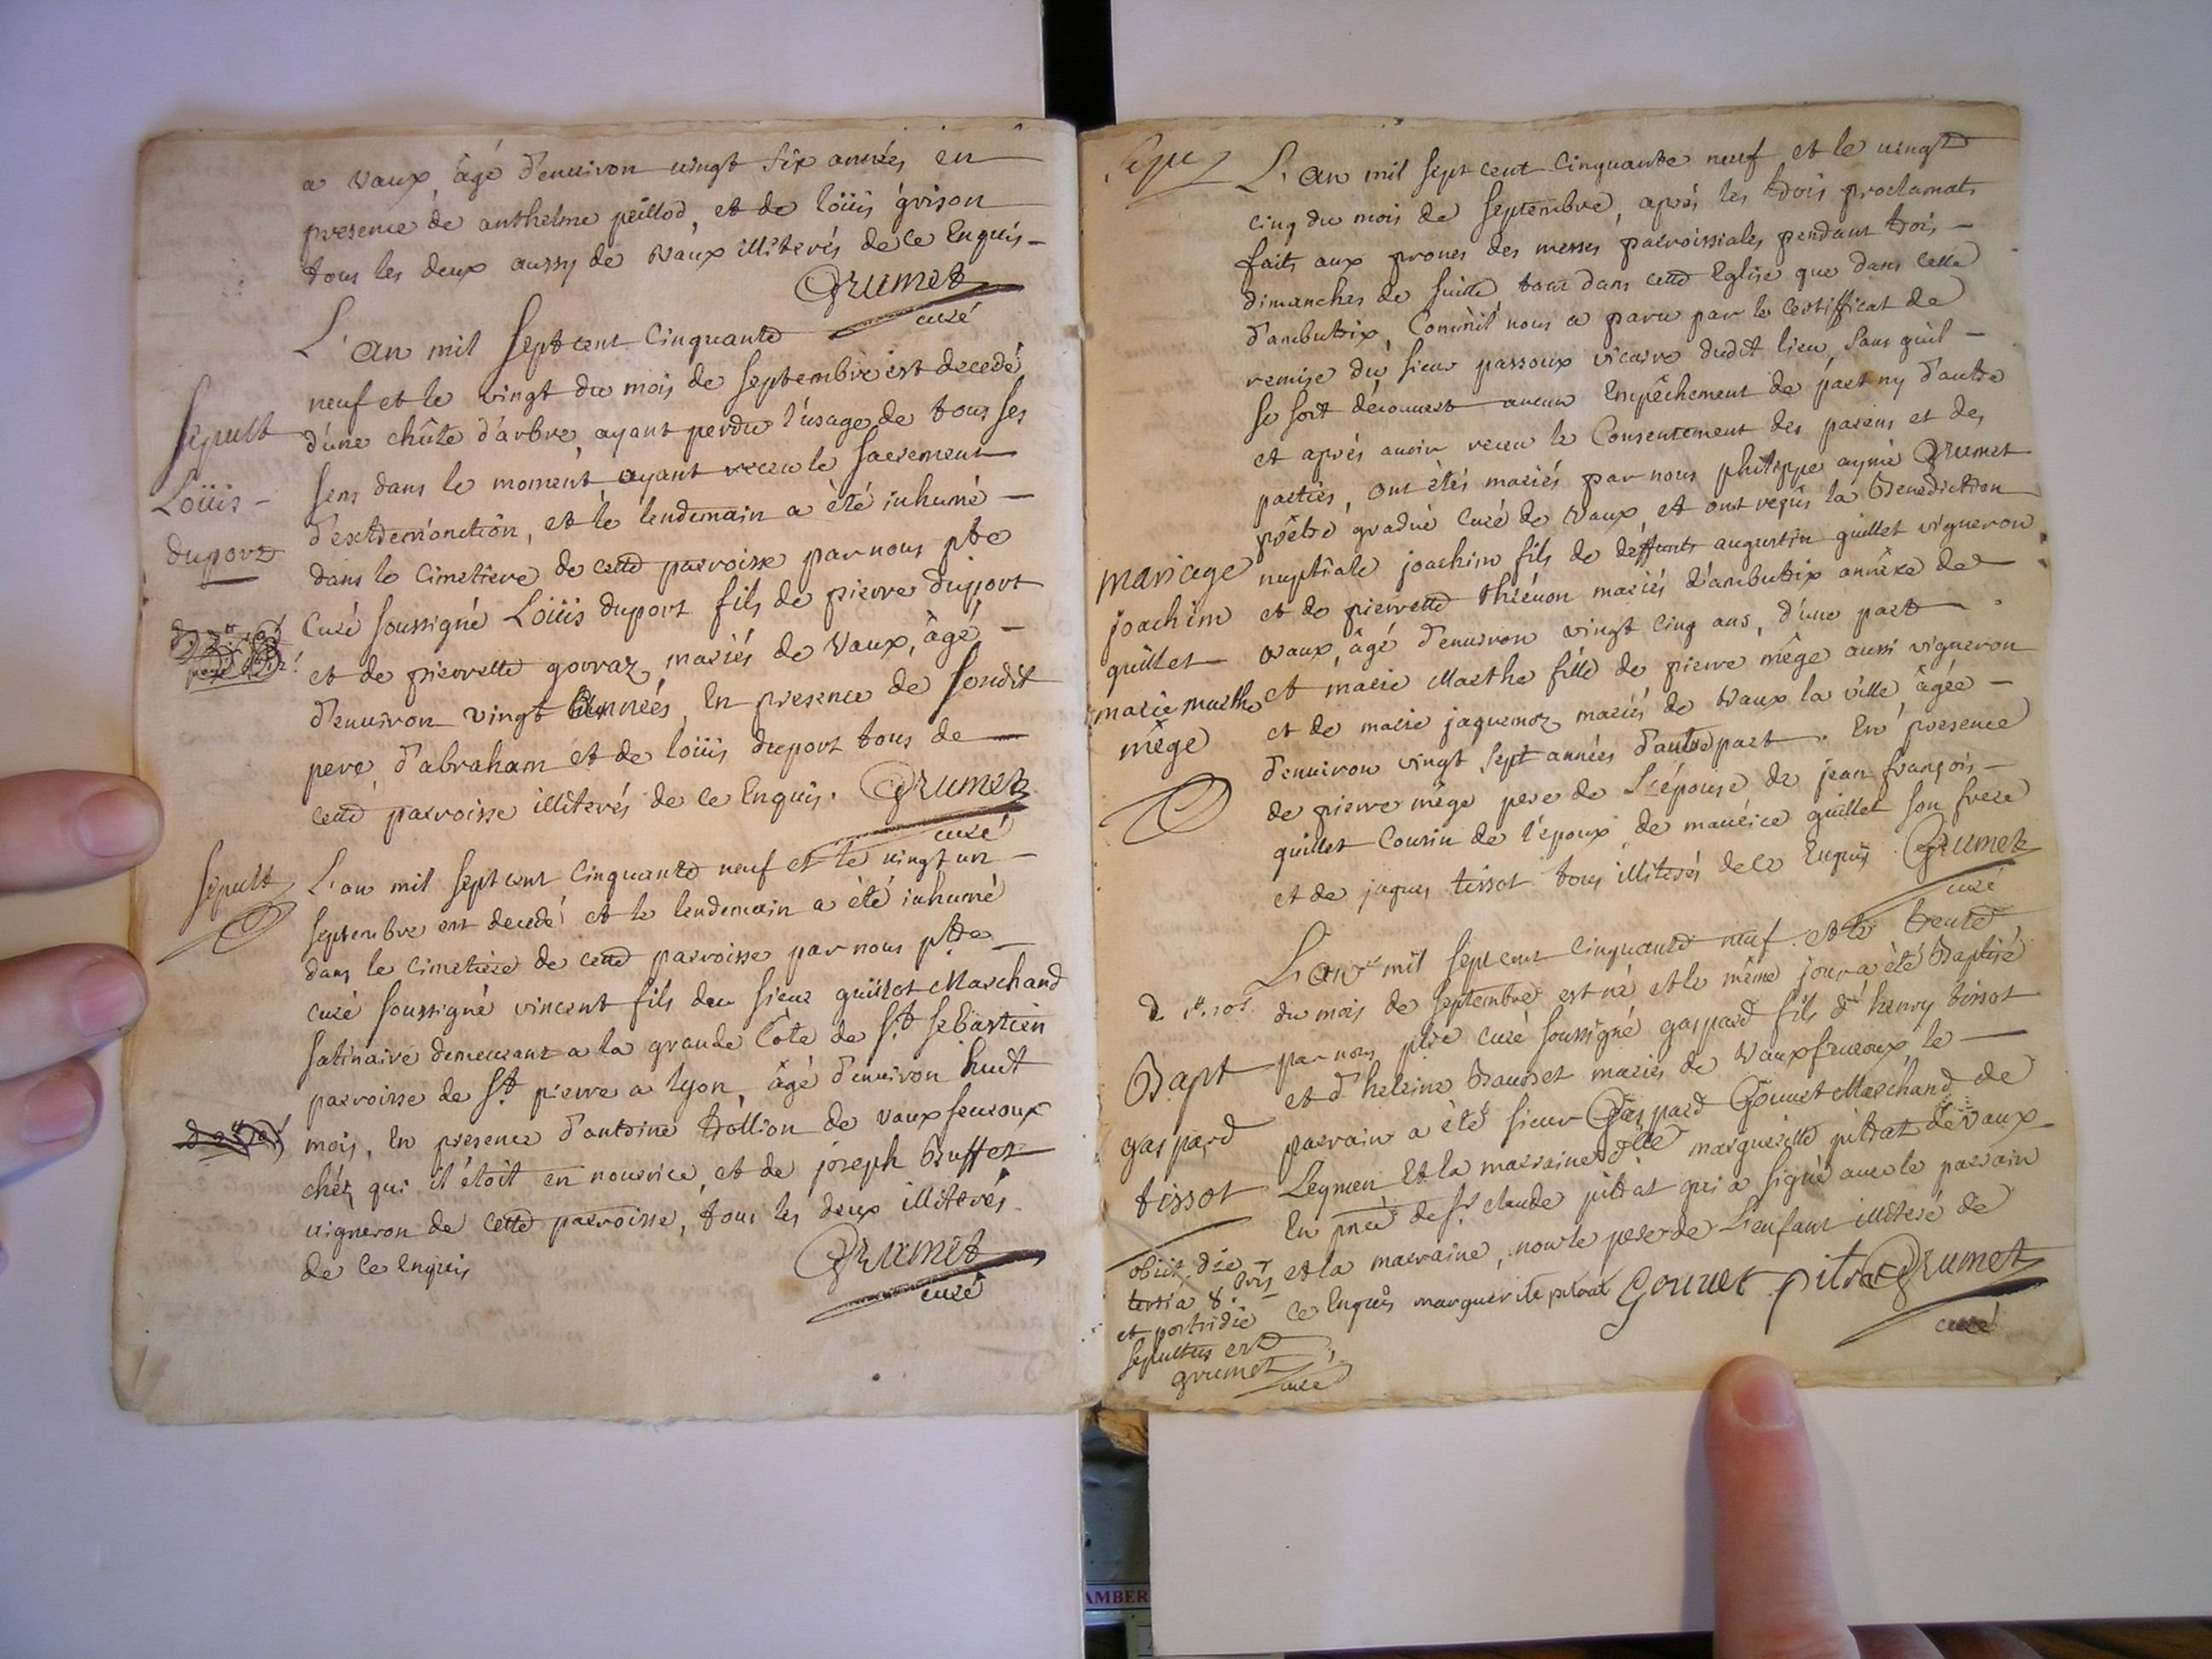 a vaux, âgé d'environ vingt six années, en
presence de anthelme peillod, et de loüis grison
tous les deux aussy de vaux illiterés de ce Enquis
Grumet
curé
L'an mil sept cent Cinquante
neuf et le vingt du mois de septembre est decedé
d'une chûte d'arbre, ayant perdu l'usage de tous ses
sens dans le moment ayant receu le sacrement
d'extremonction, et le lendemain a été inhumé
dans le Cimetiere de cette parroisse par nous ptre
Curé soussigné Loüis duport fils de pierre duport
et de pierrette gorraz, mariés de vaux, âgé
d'environ vingt années, En presence de sondit
pere, d'abraham et de loüis duport tous de
cette parroisse illiterés de ce Enquis. Grumet
curé
Sepult
Loüis
duport
Sepult
L'an mil sept cent Cinquante neuf et le vingt un
septembre est decedé et le lendemain a été inhumé
dans le cimetiere de cette parroisse par nous ptre
curé soussigné vincent fils du sieur guillot Marchand
satinaire demeurant a la grande Côte de St sebastien
parroisse de St pierre a lyon, âgé d'environ huit
mois, En presence d'antoine trollion de vaux
chez qui il étoit en nourrice, et de joseph Buffet
vigneron de cette parroisse, tous les deux illiterés
de ce Enquis
Grumet
curé
Sepu
L'an mil sept cent Cinquante neuf et le vingt
cinq du mois de septembre, aprés les trois proclamats
faits aux prones des messes parroissiales pendant trois
dimanches de suitte tant dans cette Eglise que dans celle
d'ambutrix, Comm'il nous a paru par le certifficat de
remise du sieur passoux vicaire dudit lieu, sans qu'il
se soit découvert aucun Empêchement de part ny d'autre
et aprés avoir receu le Consentement des parens et des
parties, ont étés mariés par nous philippe aymé Grumet
prêtre gradué curé de vaux, et ont reçüs la Benediction
nuptiale joachim fils de deffunts augustin guillet vigneron
et de pierrette thévenon mariés d'ambutrix annéxe de
vaux, âgé d'environ vingt cinq ans, d'une part
et marie Marthe fille de pierre mége aussi vigneron
et de marie jaquemoz mariés de vaux la ville, âgée
d'environ vingt sept années d'autre part. En presence
de pierre mége pere de L'épouse de jean françois
guillet Cousin de l'époux, de maurice guillet son frere
et de jaques tissot tous illiterés de ce Enquis. Grumet
curé
mariage
joachim
guillet
marie marthe
mége
L'an mil sept cent Cinquante neuf et le trente
du mois de septembre est né et le même jour a été Baptisé
par nous ptre curé soussigné gaspard fils d'henry tissot
et d'heleine Bausset mariés de vaux le
parrain a été sieur Gaspard Gouvet Marchand de
Leymen Et la marraine dlle marguerite pitrat de vaux
En pnce de sr claude pitrat qui a signé avec le parrain
et la marraine, non le pere de L'enfant illiteré de
ce Enquis marguerite pitrat Gouvet pitrat Grumet
curé
Bapt
gaspard
tissot
obiit die
tertia 8.bris
et postridie
sepultus est
grumet
curé